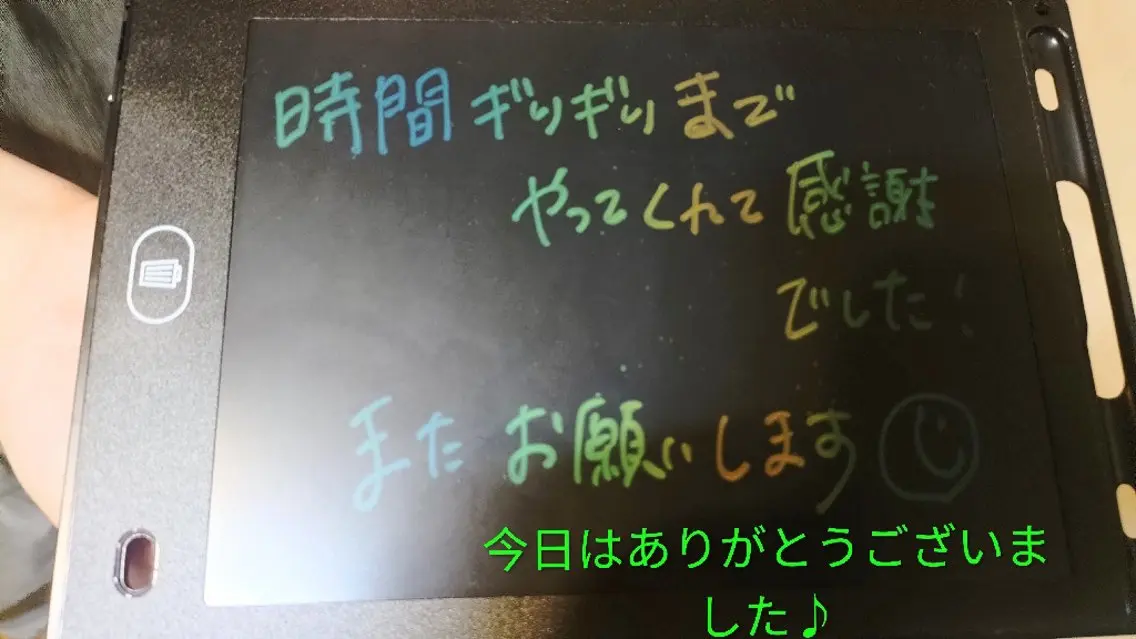 時間ギリギリまで
やってくれて感謝
でした!
またお願いします
今日はありがとうございま
した♪